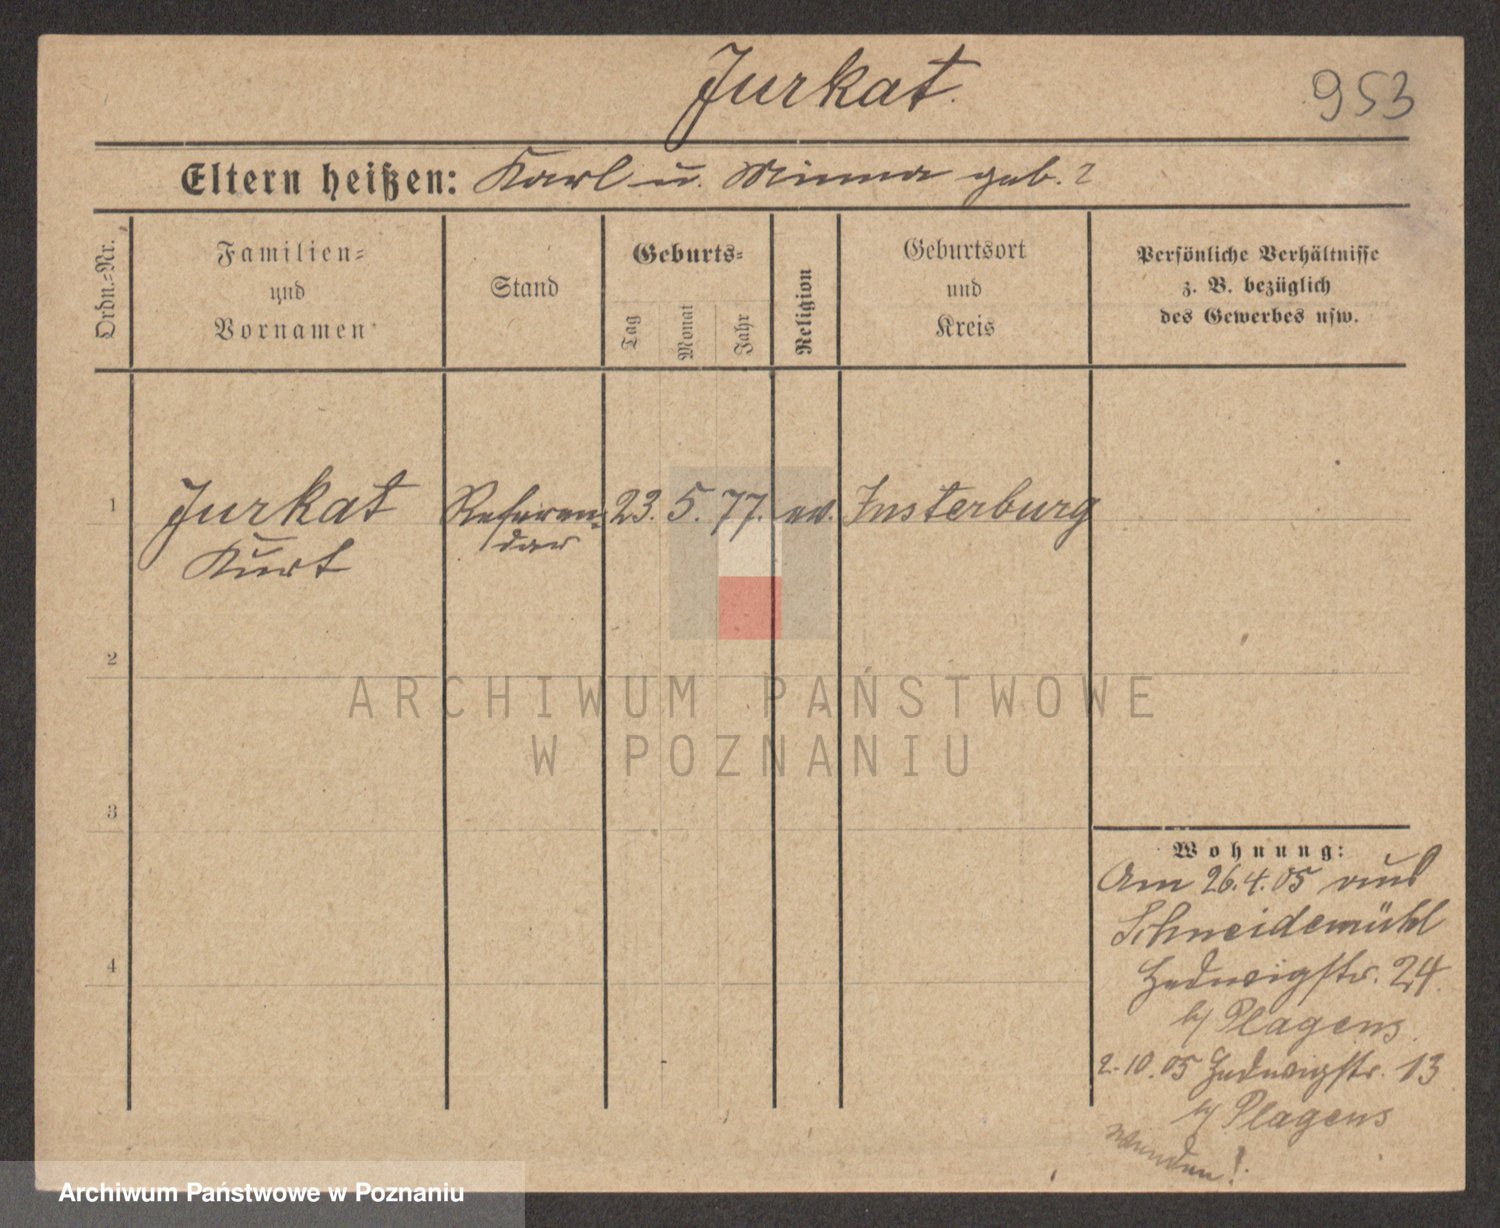 Jurkat.
953
Eltern heißen: Karl u. Minna geb. ?
Ordn.-Nr.
Familien-
und
Vornamen
Stand
Geburts-
Tag
Monat
Jahr
Religion
Geburtsort
und
Kreis
Persönliche Verhältnisse
z. B. bezüglich
des Gewerbes usw.
1 Jurkat Referen- 23. 5. 77. ev. Insterburg
Kurt dar
2
ARCHIWUM PAŃSTWOWE
W POZNANIU
3
Wohnung:
Am 26.4.05 aus
Schneidemühl
4
Hedwigstr. 24.
b/ Plagens.
2.10.05 Hedwigstr. 13
b/ Plagens
wenden!
Archiwum Państwowe w Poznaniu